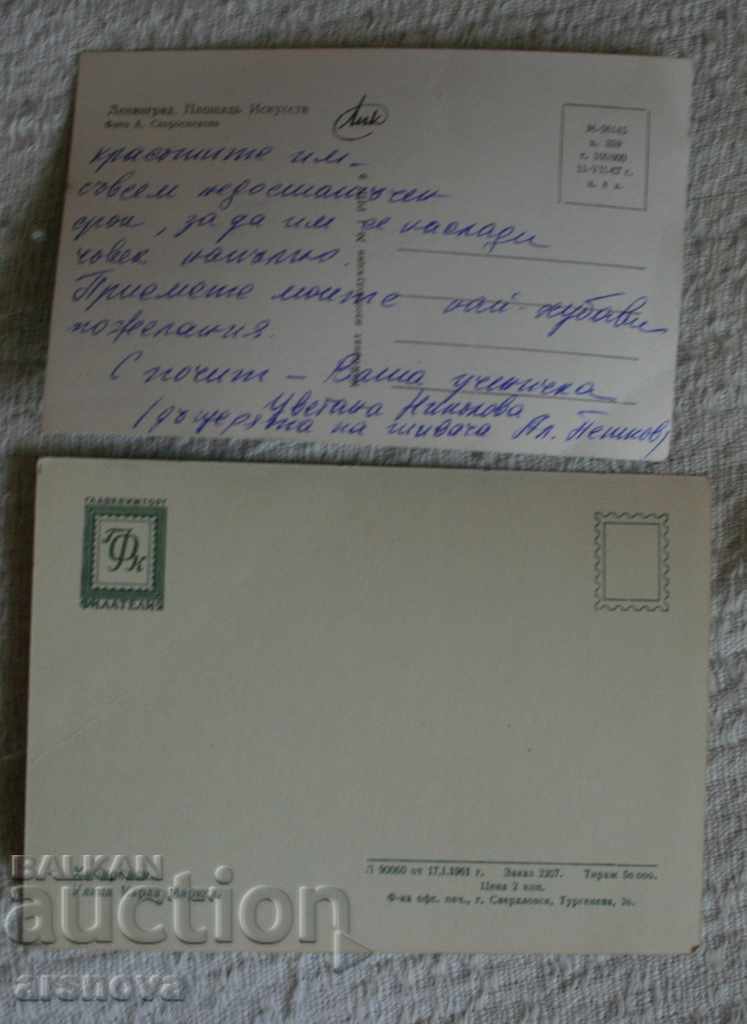 Ленинград. Площадь Искусств
Фото А. Скороспехова
Лик
М-56145
100000
красотите им –
съвсем недостатъчен
срок, за да им се наслади
човек напълно.
Приемете моите най-хубави
пожелания.
С почит – Ваша ученичка
Цветана
/дъщерята на шивача Ал. Пешков/
ГЛАВКНИГТОРГ
ГФК
ФИЛАТЕЛИЯ
Улица Карла Маркса
Л 90060 от 17.I.1961 г. Заказ 2207. Тираж 50 000.
Цена 2 коп.
Ф-ка офс. печ., г. Свердловск, Тургенева,
BALKAN
auction
arsnova